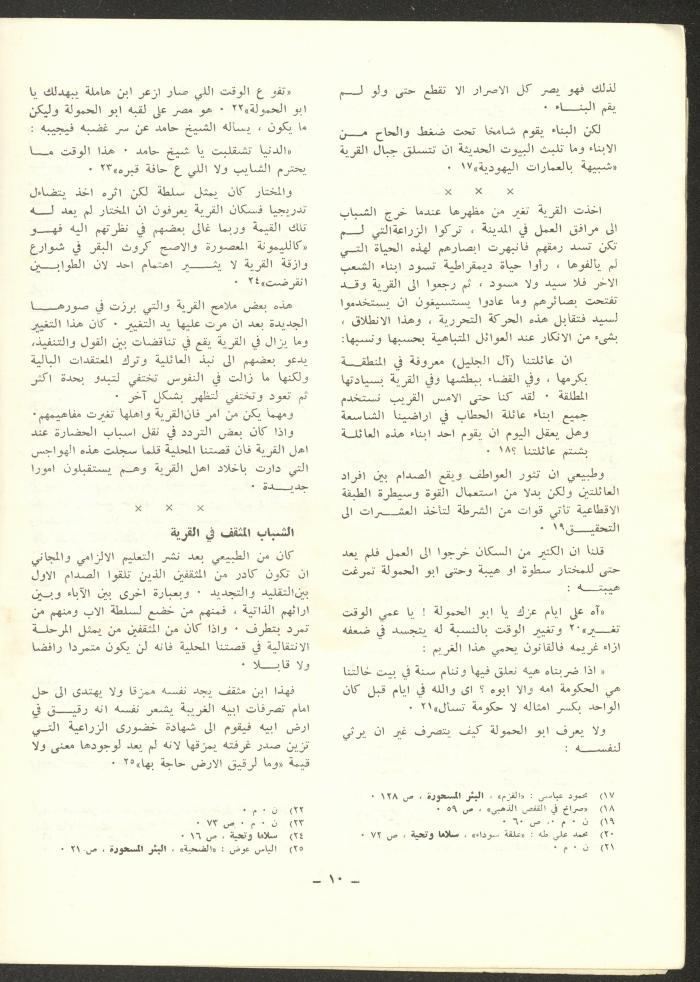 لذلك فهو يصر كل الاصرار الا تقطع حتى ولو لم
يقم البناء ٠
لكن البناء يقوم شامخا تحت ضغط والحاح من
الابناء وما تلبث البيوت الحديثة ان تتسلق جبال القرية
«شبيهة بالعمارات اليهودية»١٧ ٠
× × ×
اخذت القرية تغير من مظهرها عندما خرج الشباب
الى مرافق العمل في المدينة ، تركوا الزراعةالتي لم
تكن تسد رمقهم فانبهرت ابصارهم لهذه الحياة التي
لم يألفوها ، رأوا حياة ديمقراطية تسود ابناء الشعب
الاخر فلا سيد ولا مسود ، ثم رجعوا الى القرية وقد
تفتحت بصائرهم وما عادوا يستسيغون ان يستخدموا
لسيد فتقابل هذه الحركة التحررية ، وهذا الانطلاق ،
بشىء من الانكار عند العوائل المتباهية بحسبها ونسبها:
ان عائلتنا (آل الجليل) معروفة في المنطقة
بكرمها ، وفي القضاء ببطشها وفي القرية بسيادتها
المطلقة ٠ لقد كنا حتى الامس القريب نستخدم
جميع ابناء عائلة الحطاب في اراضينا الشاسعة
وهل يعقل اليوم ان يقوم احد ابناء هذه العائلة
بشتم عائلتنا ؟١٨ ٠
وطبيعي ان تثور العواطف ويقع الصدام بين افراد
العائلتين ولكن بدلا من استعمال القوة وسيطرة الطبقة
الاقطاعية تأتي قوات من الشرطة لتأخذ العشرات الى
التحقيق١٩ ٠
قلنا ان الكثير من السكان خرجوا الى العمل فلم يعد
حتى للمختار سطوة او هيبة وحتى ابو الحمولة تمرغت
هيبته :
«آه على ايام عزك يا ابو الحمولة ! يا عمي الوقت
تغير»٢٠ وتغيير الوقت بالنسبة له يتجسد في ضعفه
ازاء غريمه فالقانون يحمي هذا الغريم :
« اذا ضربناه هيه نعلق فيها وننام سنة في بيت خالتنا
هي الحكومة امه والا ابوه ؟ اى والله في ايام قبل كان
الواحد يكسر امثاله لا حكومة تسأل»٢١ ٠
ولا يعرف ابو الحمولة كيف يتصرف غير ان يرثي
لنفسه :
١٧) محمود عباسي : «القزم» ، البئر المسحورة ، ص ١٢٨ ٠
١٨) «صراخ في القفص الذهبي» ، ص ٥٩ ٠
١٩) ن ٠ م ٠، ص ٦٠ ٠
٢٠) محمد علي طه : «علقة سوداء» ، سلاما وتحية ، ص ٧٢ ٠
٢١) ن ٠ م ٠
«تفو ع الوقت اللي صار ازعر ابن هاملة يبهدلك يا
ابو الحمولة»٢٢ ٠ هو مصر على لقبه ابو الحمولة وليكن
ما يكون ، يسأله الشيخ حامد عن سر غضبه فيجيبه :
«الدنيا تشقلبت يا شيخ حامد ٠ هذا الوقت ما
يحترم الشايب ولا اللي ع حافة قبره»٢٣ ٠
والمختار كان يمثل سلطة لكن اثره اخذ يتضاءل
تدريجيا فسكان القرية يعرفون ان المختار لم يعد له
تلك القيمة وربما غالى بعضهم في نظرتهم اليه فهو
«كالليمونة المعصورة والاصح كروث البقر في شوارع
وازقة القرية لا يثير اهتمام احد لان الطوابين
انقرضت»٢٤ ٠
هذه بعض ملامح القرية والتي برزت في صورها
الجديدة بعد ان مرت عليها يد التغيير ٠ كان هذا التغيير
وما يزال في القرية يقع في تناقضات بين القول والتنفيذ،
يدعو بعضهم الى نبذ العائلية وترك المعتقدات البالية
ولكنها ما زالت في النفوس تختفي لتبدو بحدة اكثر
ثم تعود وتختفي لتظهر بشكل آخر ٠
ومهما يكن من امر فانالقرية واهلها تغيرت مفاهيمهم٠
واذا كان بعض التردد في نقل اسباب الحضارة عند
اهل القرية فان قصتنا المحلية قلما سجلت هذه الهواجس
التي دارت باخلاد اهل القرية وهم يستقبلون امورا
جديدة ٠
× × ×
الشباب المثقف في القرية
كان من الطبيعي بعد نشر التعليم الالزامي والمجاني
ان تكون كادر من المثقفين الذين تلقوا الصدام الاول
بينالتقليد والتجديد ٠ وبعبارة اخرى بين الآباء وبين
ارائهم الذاتية ، فمنهم من خضع لسلطة الاب ومنهم من
تمرد بتطرف ٠ واذا كان من المثقفين من يمثل المرحلة
الانتقالية في قصتنا المحلية فانه لن يكون متمردا رافضا
ولا قابلا ٠
فهذا ابن مثقف يجد نفسه ممزقا ولا يهتدى الى حل
امام تصرفات ابيه الغريبة يشعر نفسه انه رقيق في
ارض ابيه فيقوم الى شهادة خضورى الزراعية التي
تزين صدر غرفته يمزقها لانه لم يعد لوجودها معنى ولا
قيمة «وما لرقيق الارض حاجة بها»٢٥ ٠
٢٢) ن ٠ م ٠
٢٣) ن ٠ م ٠ ص ٧٣ ٠
٢٤) سلاما وتحية ، ص ١٦ ٠
٢٥) الياس عوض : «الضحية» ، البئر المسحورة ، ص ٢١ ٠
– ١٠ –